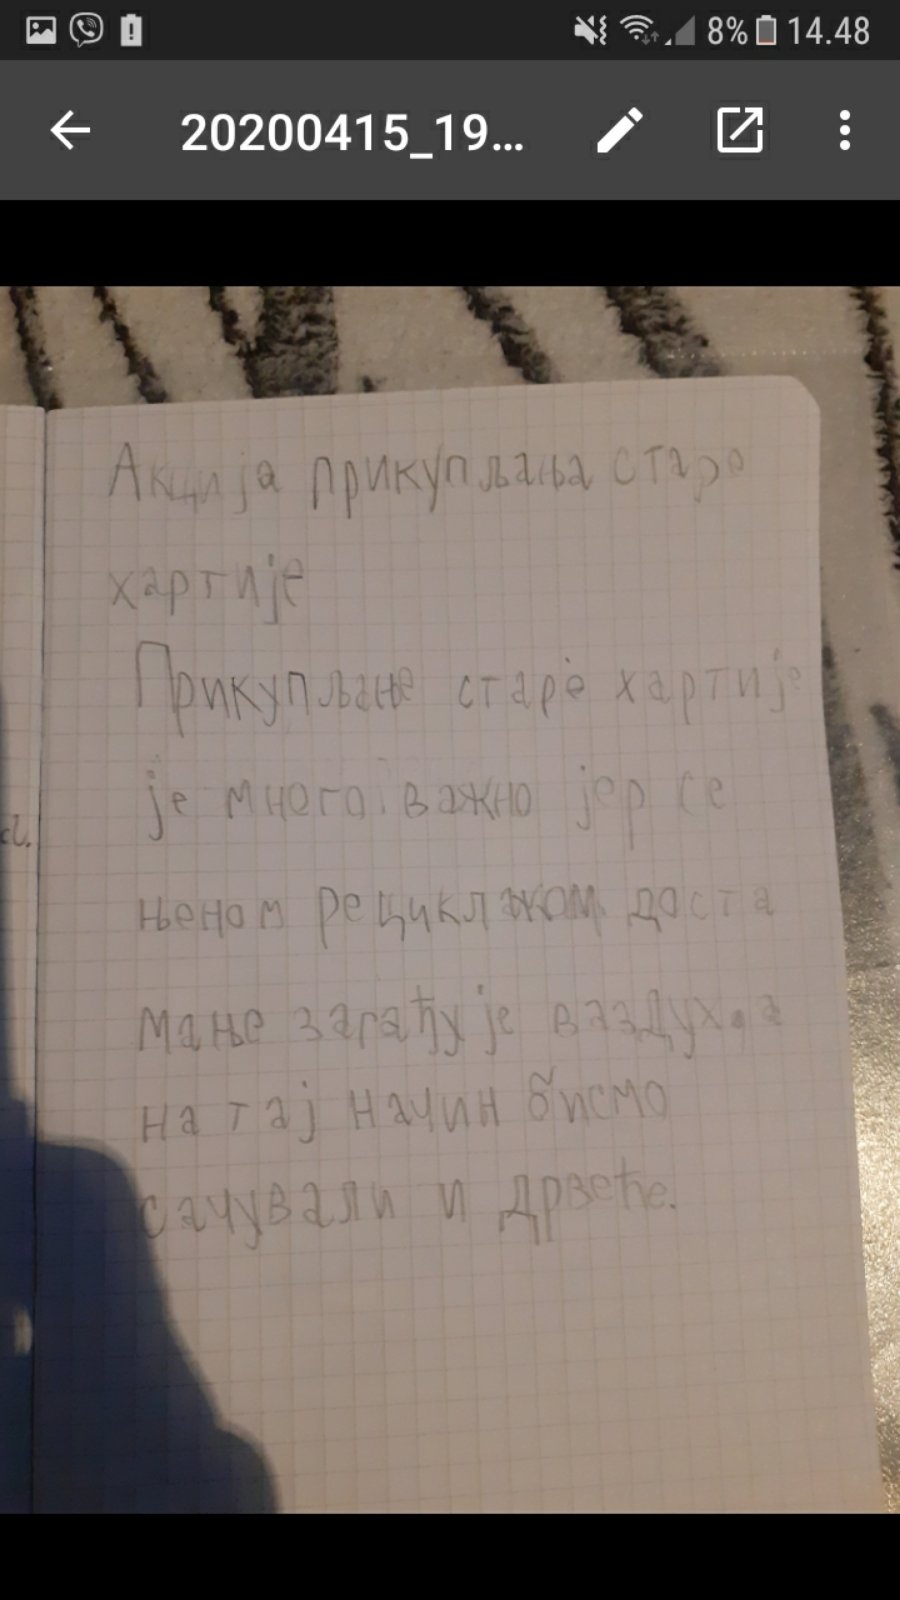 8% 14.48
20200415_19...
Акција прикупљања старе
хартије
Прикупљање старе хартије
је много важно јер се
њеном рециклажом доста
мање загађује ваздух, а
на тај начин бисмо
сачували и дрвеће.